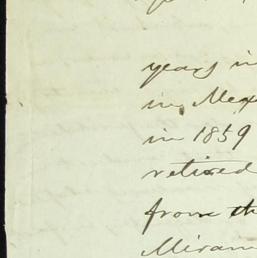 years in
in Mex
in 1859
retired
from th
Miram